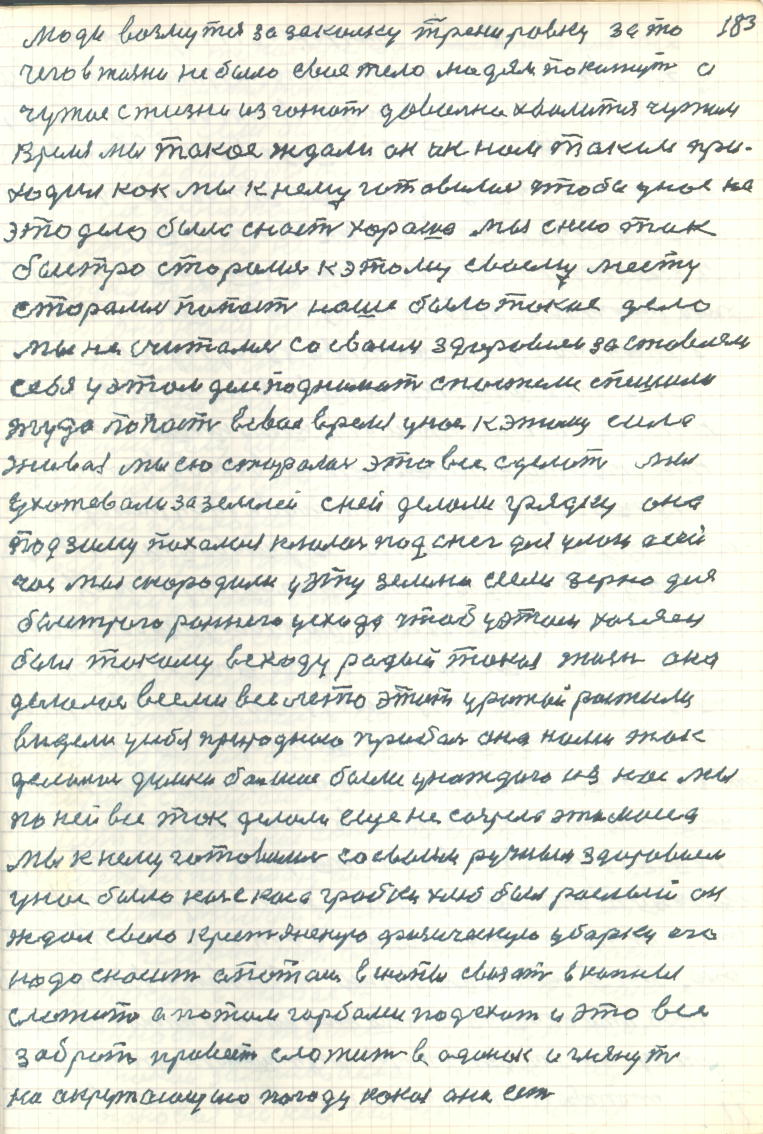 люди возмутся за закалку тренировку за то 183
чего в жизни не было свае тело людям покажут а
чужое с жизни изгонят довольна хвалится чужим
время мы такое ждали он ик нам таким при-
ходил как мы к нему готовились чтобы у нас на
это дело была снасть хорошо мы снею так
быстро старались к этому своему месту
старались попасть наше было такое дело
мы не считались со своим здоровием заставляли
себя у этом деле поднимат с постели спешили
туда попасть в евое время у нас к этому сила
живая мы ею старались это все сделать мы
ухожевали за землей с ней делали грядку она
под зиму пахалась клалась под снег для
час мы скородили у эту землю сеели зерно для
быстрого раннего усхода чтоб у этом хозяен
был такому всходу радый такая жизнь она
делалася всеми все лето этот урожай растили
видели у себя природнаю прибыл она нами так
делалася думки большие были у каждого из нас мы
по ней все так делали еще не созрела эта масса
мы к нему готовились со своим ручным здоровием
у нас была коса грабки хлеб был рослый он
ждал свою крестянскую физическую уборку его
надо скосит а потом в снопы связат в копны
сложить а потом гарбами подехат и это все
забрать привест сложит в одонок и глянут
на акружающию погоду какая она ест